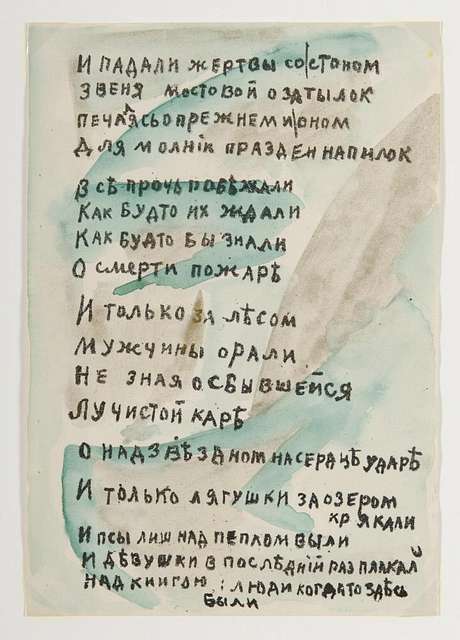 И ПАДАЛИ ЖЕРТВЫ СО|СТОНОМ
ЗВЕНЯ МОСТОВОЙ О ЗАТЫЛОК
ПЕЧАЯСЬ О ПРЕЖНЕМ И|ОНОМ
ДЛЯ МОЛНІК ПРАЗДЕН НАПИЛОК
ВСѢ ПРОЧЬ ПОБѢЖАЛИ
КАК БУДТО ИХ ЖДАЛИ
КАК БУДТО БЫ ЗНАЛИ
О СМЕРТИ ПОЖАРѢ
И ТОЛЬКО ЗА ЛѢСОМ
МУЖЧИНЫ ОРАЛИ
НЕ ЗНАЯ О СБЫВШЕЙСЯ
ЛУЧИСТОЙ КАРѢ
О НАДЗВѢЗДНОМ НА СЕРДЦѢ УДАРѢ
И ТОЛЬКО ЛЯГУШКИ ЗА ОЗЕРОМ
КРЯКАЛИ
И ПСЫ ЛИШ НАД ПЕПЛОМ ВЫЛИ
И ДѢВУШКИ В ПОСЛѢДНІЙ РАЗ ПЛАКАЛИ
НАД КНИГОЮ : ЛЮДИ КОГДАТО ЗДѢСЬ
БЫЛИ